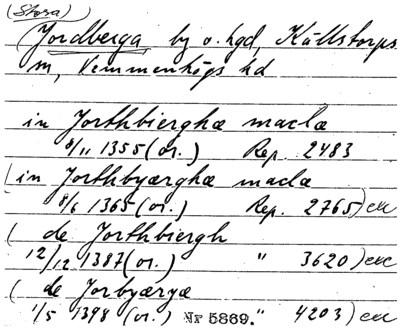 (Stora)
(Jordberga by o. hgd, Källstorps
sn, Vemmenhögs hd
in Jorthbierghæ maclæ
8/11 1355 (or.) Rep. 2483
(in Jorthbyærghæ maclæ
8/6 1365 (or.) Rep. 2765) exc
( de Jorthbiergh
12/12 1387 (or.) " 3620) exc
( de Jorbyærgæ
1/5 1398 (or.) Nr 5869. " 4203) exc